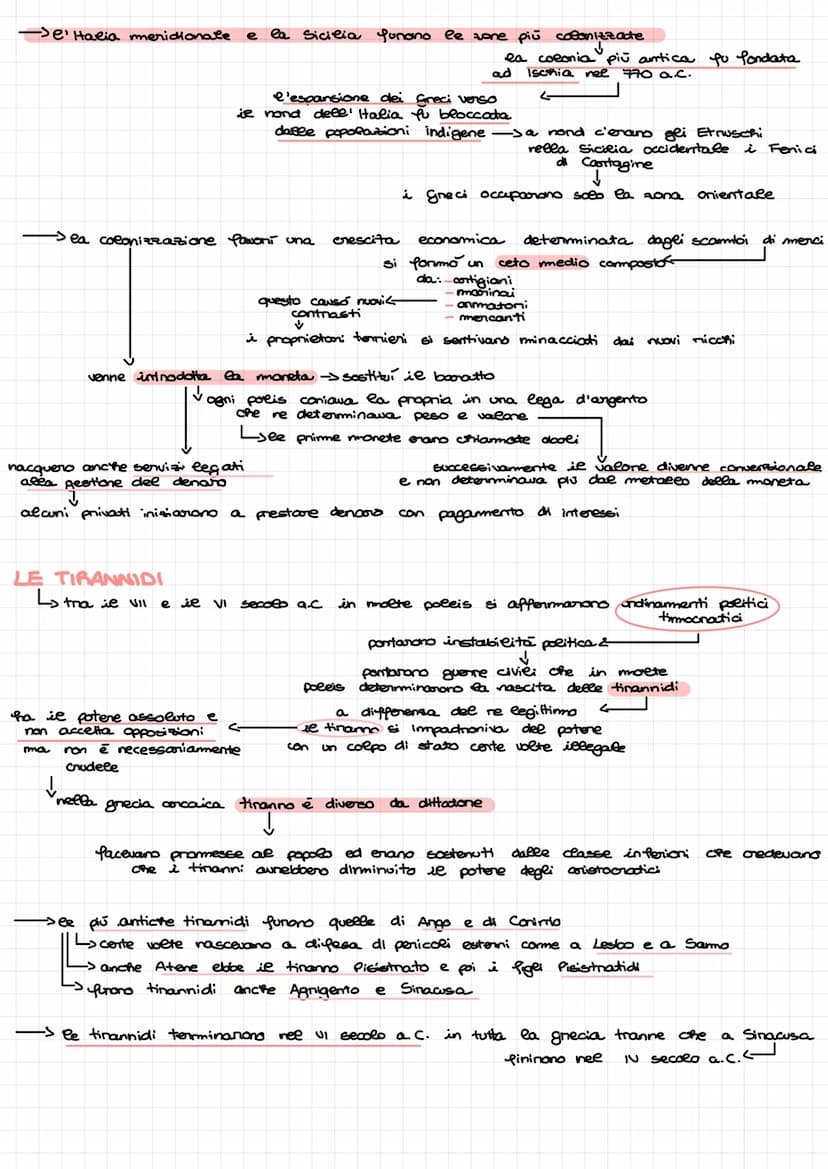 → l'Italia meridionale e la Sicilia furono le zone più colonizzate
la colonia più antica fu fondata
ad Ischia nel 770 a.C.
l'espansione dei Greci verso
il nord dell'Italia fu bloccata
dalle popolazioni indigene → a nord c'erano gli Etruschi
nella Sicilia occidentale i Fenici
di Cartagine
i Greci occuparono solo la zona orientale
→ la colonizzazione favorì una crescita economica determinata dagli scambi di merci
si formò un ceto medio composto
da: - artigiani
- marinai
questo causò nuovi - armatori
contrasti - mercanti
i proprietari terrieri si sentivano minacciati dai nuovi ricchi
venne introdotta la moneta → sostituì il baratto
ogni polis coniava la propria in una lega d'argento
che re determinava peso e valore
le prime monete erano chiamate oboli
nacquero anche servizi legati successivamente il valore divenne conversionale
alla gestione del denaro e non determinava più dal metallo della moneta
alcuni privati iniziarono a prestare denaro con pagamento di interessi
LE TIRANNIDI
tra il VII e il VI secolo a.C in molte poleis si affermarono ordinamenti politici
timocratici
portarono instabilità politica
portarono guerre civili che in molte
poleis determinarono la nascita delle tirannidi
ha il potere assoluto e a differenza del re legittimo
non accetta opposizioni il tiranno si impadroniva del potere
ma non è necessariamente con un colpo di stato certe volte illegale
crudele
nella grecia arcaica tiranno è diverso da dittatore
facevano promesse al popolo ed erano sostenuti dalle classe inferiori che credevano
che i tiranni avrebbero dirminuito il potere degli aristocratici
→ le più antiche tirannidi furono quelle di Argo e di Corinto
→ certe volte nascevano a difesa di pericoli esterni come a Lesbo e a Samo
→ anche Atene ebbe il tiranno Pisistrato e poi i figli Pisistratidi
→ furono tirannidi anche Agrigento e Siracusa
→ le tirannidi terminarono nel VI secolo a C. in tutta la grecia tranne che a Siracusa
finirono nel IV secolo a.C.